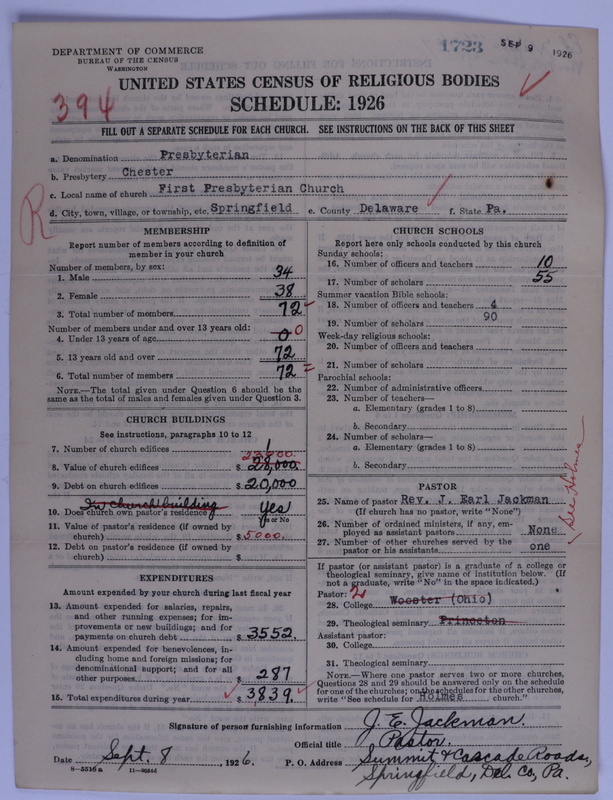 DEPARTMENT OF COMMERCE
BUREAU OF THE CENSUS
WASHINGTON
1723 SEP 9 1926
UNITED STATES CENSUS OF RELIGIOUS BODIES
394
SCHEDULE: 1926
FILL OUT A SEPARATE SCHEDULE FOR EACH CHURCH. SEE INSTRUCTIONS ON THE BACK OF THIS SHEET
a. Denomination Presbyterian
b. Presbytery Chester
c. Local name of church First Presbyterian Church
R
d. City, town, village, or township, etc. Springfield e. County Delaware f. State Pa.
MEMBERSHIP
Report number of members according to definition of
member in your church
Number of members, by sex:
1. Male 34
2. Female 38
3. Total number of members 72
Number of members under and over 13 years old:
4. Under 13 years of age 0 0
5. 13 years old and over 72
6. Total number of members 72
NOTE.—The total given under Question 6 should be the
same as the total of males and females given under Question 3.
CHURCH BUILDINGS
See instructions, paragraphs 10 to 12
7. Number of church edifices 1
23,000.
8. Value of church edifices $ 28,000.
9. Debt on church edifices $ 20,000
In church building
10. Does church own pastor's residence? Yes
Yes or No
11. Value of pastor's residence (if owned by
church) $ 5000.
12. Debt on pastor's residence (if owned by
church) $
EXPENDITURES
Amount expended by your church during last fiscal year
13. Amount expended for salaries, repairs,
and other running expenses; for im-
provements or new buildings; and for
payments on church debt $ 3552.
14. Amount expended for benevolences, in-
cluding home and foreign missions; for
denominational support; and for all
other purposes $ 287
15. Total expenditures during year $ 3,839.
CHURCH SCHOOLS
Report here only schools conducted by this church
Sunday schools:
16. Number of officers and teachers 10
17. Number of scholars 55
Summer vacation Bible schools:
18. Number of officers and teachers 4
19. Number of scholars 90
Week-day religious schools:
20. Number of officers and teachers
21. Number of scholars
Parochial schools:
22. Number of administrative officers
23. Number of teachers—
a. Elementary (grades 1 to 8)
b. Secondary
24. Number of scholars—
a. Elementary (grades 1 to 8)
b. Secondary
PASTOR
25. Name of pastor Rev. J. Earl Jackman
(If church has no pastor, write "None")
26. Number of ordained ministers, if any, em-
ployed as assistant pastors None
27. Number of other churches served by the
pastor or his assistants one
See Holmes
If pastor (or assistant pastor) is a graduate of a college or
theological seminary, give name of institution below. (If
not a graduate, write "No" in the space indicated.)
Pastor: 2
28. College Wooster (Ohio)
29. Theological seminary Princeton
Assistant pastor:
30. College
31. Theological seminary
NOTE.—Where one pastor serves two or more churches,
Questions 28 and 29 should be answered only on the schedule
for one of the churches; on the schedules for the other churches,
write "See schedule for Holmes church."
Signature of person furnishing information J. E. Jackman.
Official title Pastor.
Date Sept. 8, 1926. P. O. Address Summit & Cascade Roads,
Springfield, Del. Co., Pa.